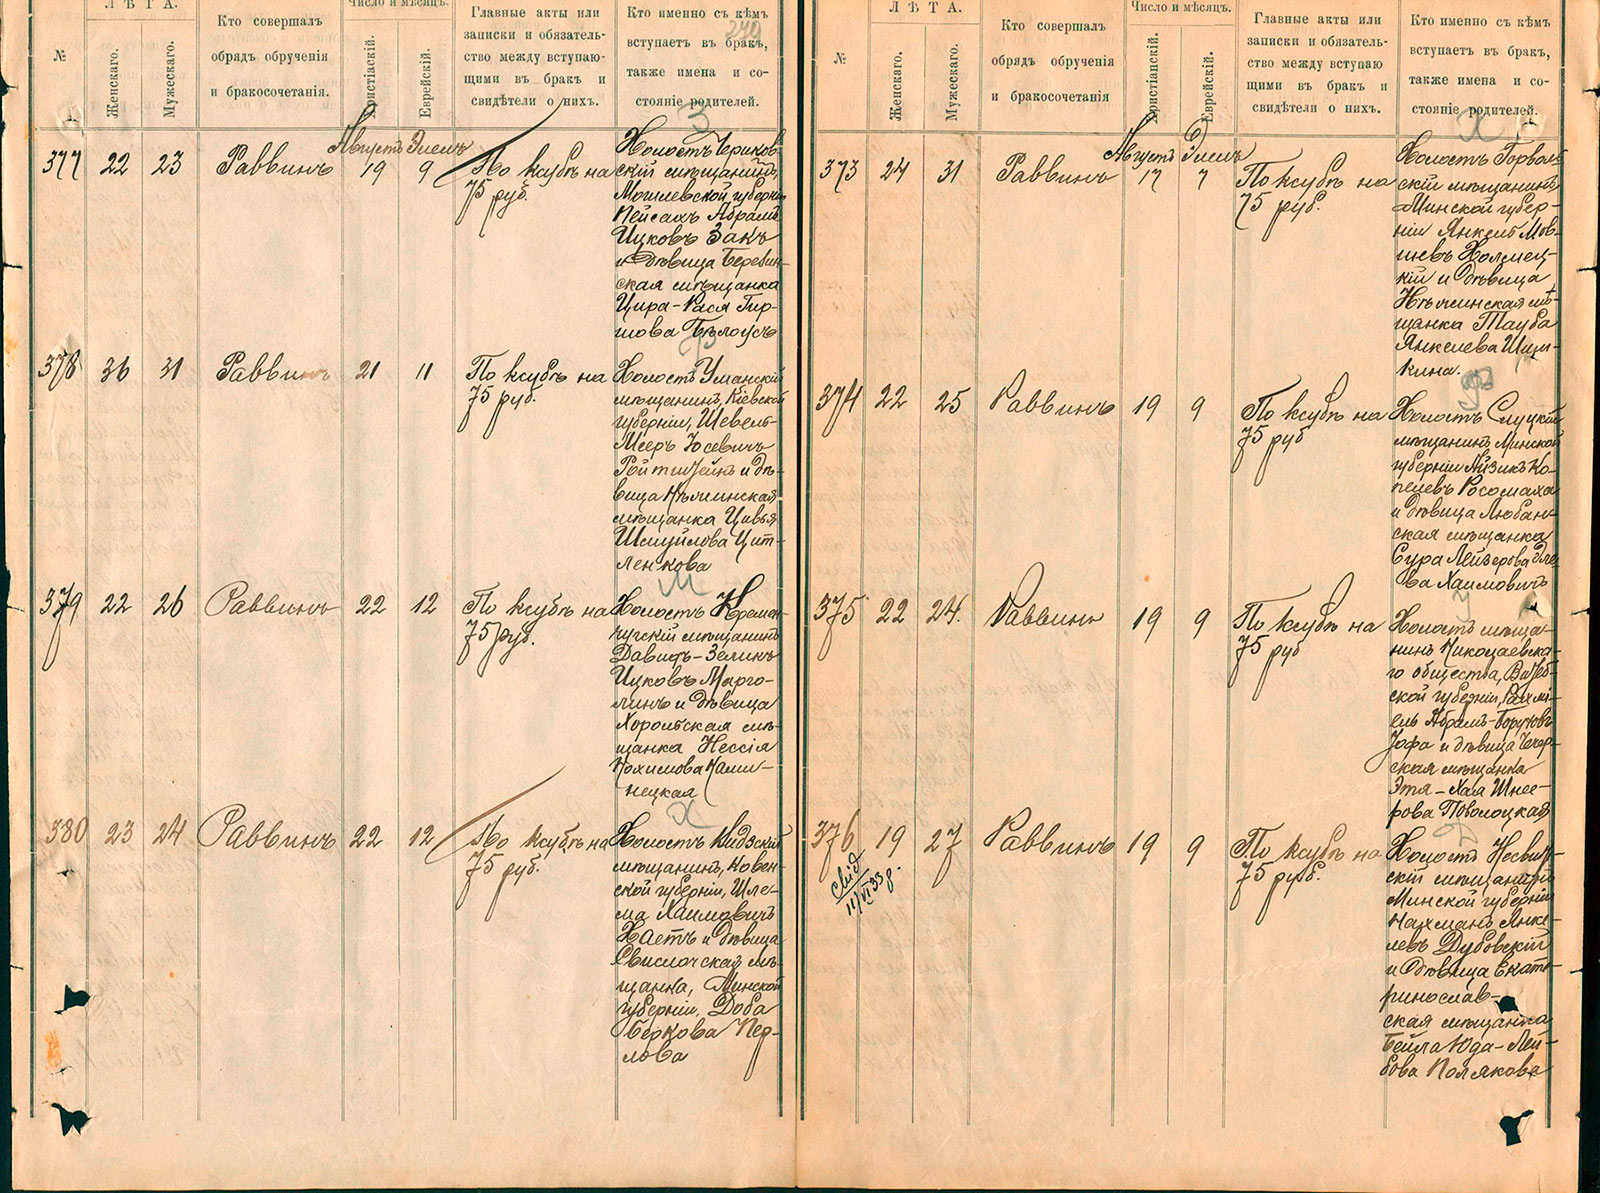 ЛѢТА.
Число и мѣсяцъ.
№
Женскаго.
Мужескаго.
Кто совершалъ
обрядъ обрученія
и бракосочетанія.
Христіаскій.
Еврейскій.
Главные акты или
записки и обязатель-
ство между вступаю-
щими въ бракъ и
свидѣтели о нихъ.
Кто именно съ кѣмъ
вступаетъ въ бракъ,
также имена и со-
стояніе родителей.
240
З
377 22 23 Раввинъ Августъ 19 Элелъ 9
По ксубѣ на
75 руб.
Холостъ Чериков-
скій мѣщанинъ,
Могилевской губерніи
Пейсахъ Абрамъ
Ицковъ Закъ
и дѣвица Березин-
ская мѣщанка
Цира-Рася Гир-
шова Бѣлоусъ
Р
378 36 31 Раввинъ 21 11
По ксубѣ на
75 руб.
Холостъ Уманскій
мѣщанинъ, Кіевской
губерніи, Шевель-
Мееръ Іосевичъ
Ройтштейнъ и дѣ-
вица Нѣжинская
мѣщанка Цивья
Шмуйлова Цит-
ленкова
М
379 22 26 Раввинъ 22 12
По ксубѣ на
75 руб.
Холостъ Кремен-
чугскій мѣщанинъ
Давидъ-Зелинъ
Ицковъ Марго-
линъ и дѣвица
Хорольская мѣ-
щанка Нессія
Нохимова Камю-
нецкая
Х
380 23 24 Раввинъ 22 12
По ксубѣ на
75 руб.
Холостъ Видзскій
мѣщанинъ, Ковен-
ской губерніи, Шле-
ма Хаимовичъ
Хаетъ и дѣвица
Свислочская мѣ-
щанка, Минской
губерніи, Доба
Беркова Пер-
лова
ЛѢТА.
Число и мѣсяцъ.
№
Женскаго.
Мужескаго.
Кто совершалъ
обрядъ обрученія
и бракосочетанія
Христіанскій.
Еврейскій.
Главные акты или
записки и обязатель-
ство между вступаю
щими въ бракъ и
свидѣтели о нихъ.
Кто именно съ кѣмъ
вступаетъ въ бракъ,
также имена и со-
стояніе родителей.
Х
373 24 31 Раввинъ Августъ 17 Элелъ 7
По ксубѣ на
75 руб.
Холостъ Горволь-
скій мѣщанинъ
Минской губер-
ніи Янкель Мов-
шевъ Холмец-
кій и дѣвица
Нѣжинская мѣ-
щанка Тауба
Янкелева
кина.
Р
374 22 25 Раввинъ 19 9
По ксубѣ на
75 руб
Холостъ Слуцкій
мѣщанинъ Минской
губерніи Айзикъ Ко-
пелевъ Росомаха
и дѣвица Любан-
ская мѣщанка
Сура Лейзерова
Хаимовичъ
375 22 24. Раввинъ 19 9
По ксубѣ на
75 руб
Холостъ мѣща-
нинъ Николаевска-
го общества, Витеб-
ской губерніи, Рахмі-
ель Абрамъ-Боруховъ
Іофа и дѣвица Чечер-
ская мѣщанка
Этя-Хая Шнее-
рова Поволоцкая
Д
376 19 27 Раввинъ 19 9
свид
11/VI 33 г.
По ксубѣ на
75 руб.
Холостъ Несвиж-
скій мѣщанинъ
Минской губерніи
Нахманъ Янке-
левъ Дубовскій
и дѣвица Екате-
ринослав-
ская мѣщанка
Бейла Юда-Лей-
бова Полякова